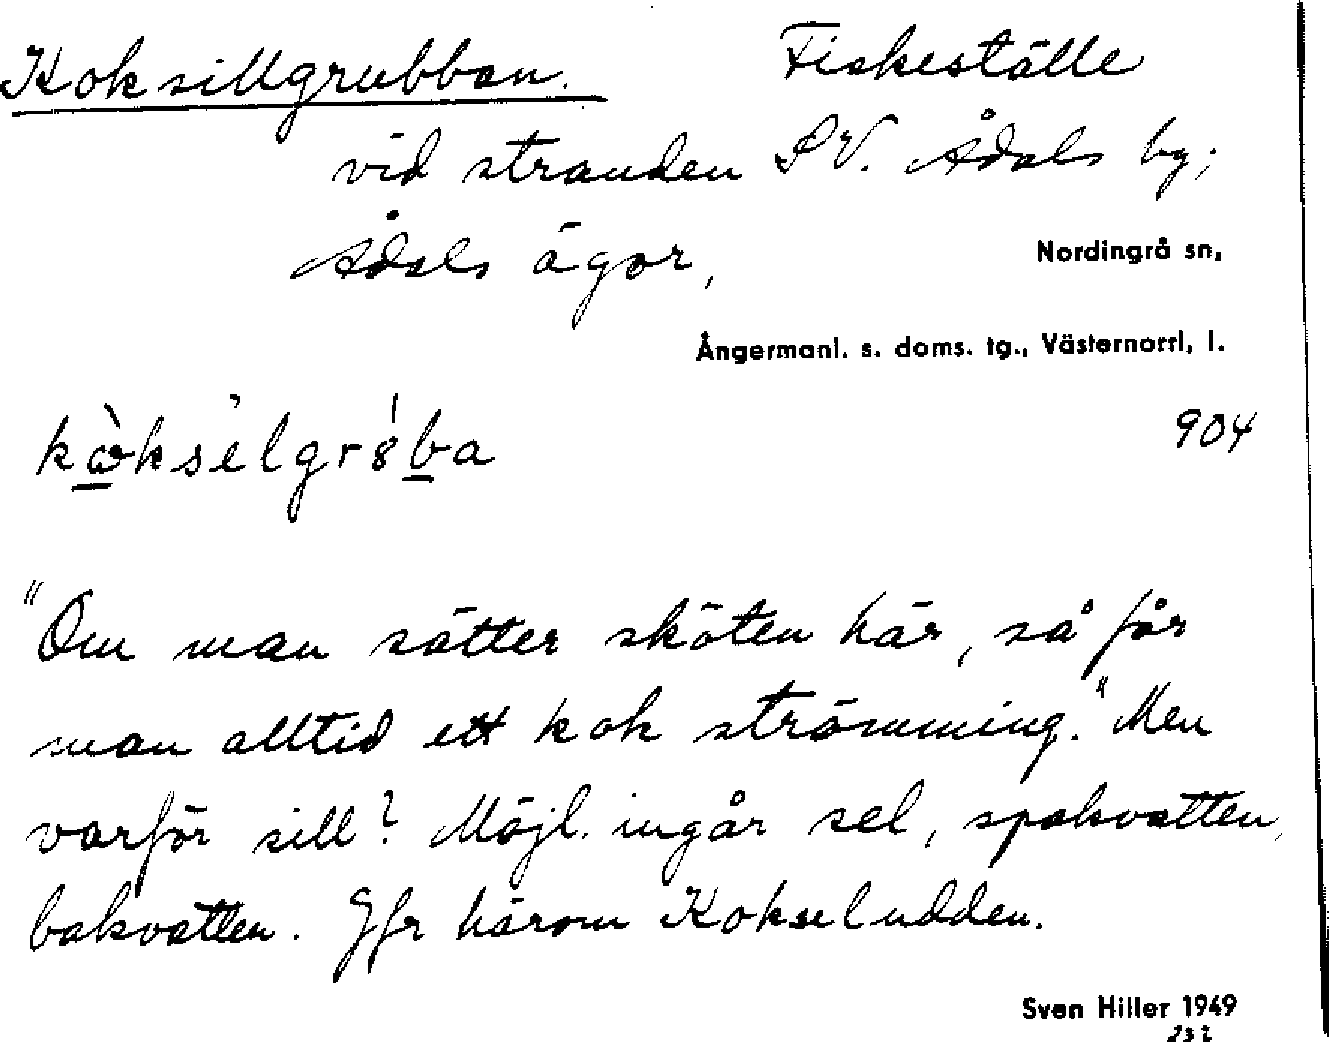 Koksillgrubban. Fiskeställe
vid stranden SV. Ådals by;
Ådals ägor, Nordingrå sn,
Ångermanl. s. doms. tg., Västernorrl, l.
904
"Om man sätter sköten här, så får
man alltid ett kok strömming." Men
varför sill? Möjl. ingår sel, spakvatten,
bakvatten. Jfr härom Kokseludden.
Sven Hiller 1949
232